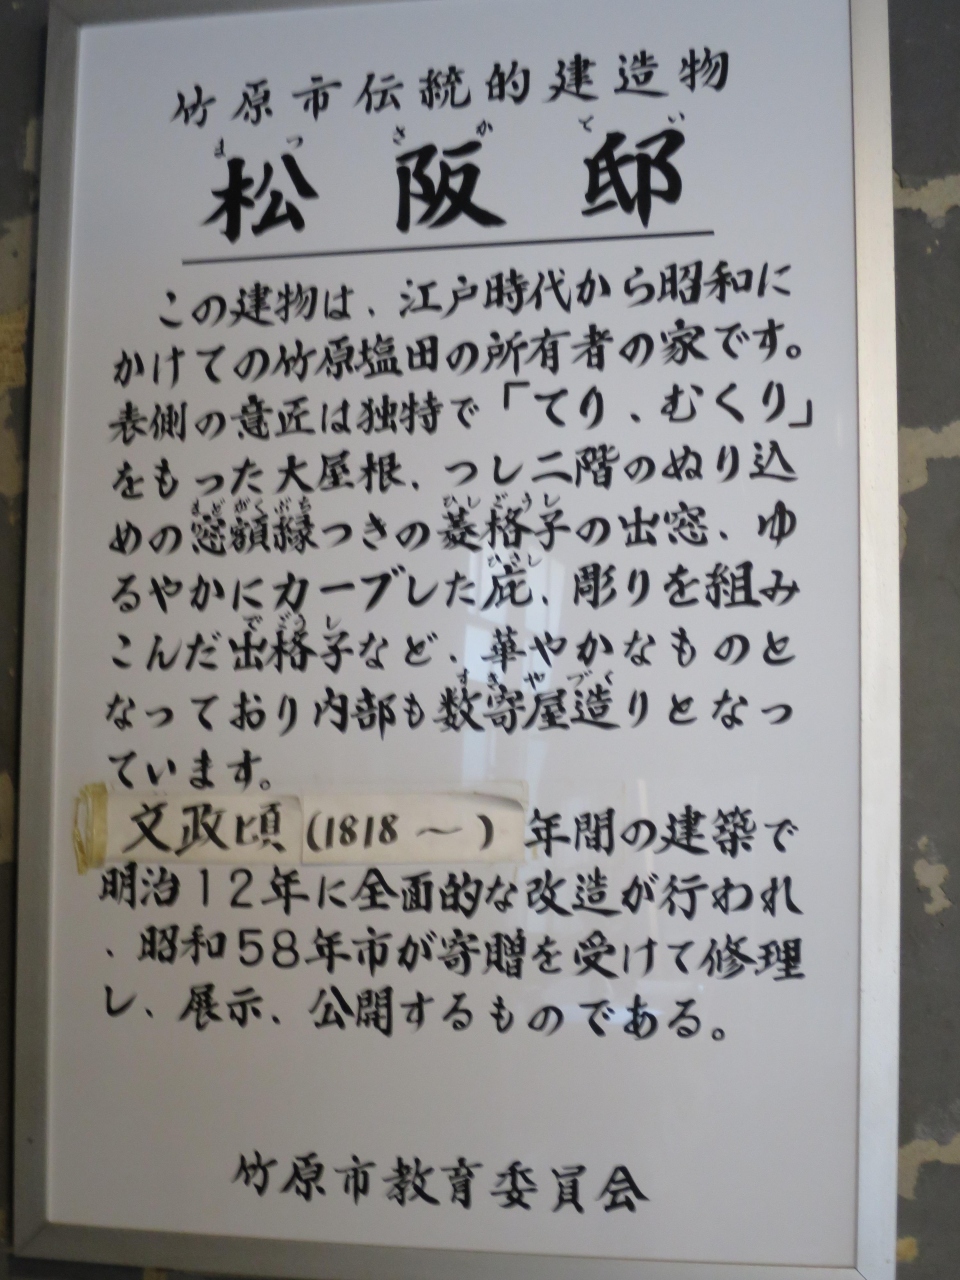 竹原市伝統的建造物
まつ さか てい
松阪邸
この建物は、江戸時代から昭和に
かけての竹原塩田の所有者の家です。
表側の意匠は独特で「てり、むくり」
をもった大屋根、つし二階のぬり込
まどがくぶち ひしごうし
めの窓額縁つきの菱格子の出窓、ゆ
ひさし
るやかにカーブした庇、彫りを組み
でごうし
こんだ出格子など、華やかなものと
すきやづく
なっており内部も数寄屋造りとなっ
ています。
文政頃(1818〜)年間の建築で
明治12年に全面的な改造が行われ
、昭和58年市が寄贈を受けて修理
し、展示、公開するものである。
竹原市教育委員会